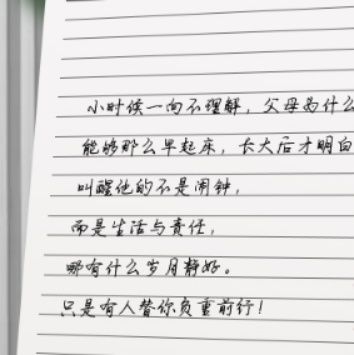 小时候一向不理解，父母为什么
能够那么早起床，长大后才明白
叫醒他的不是闹钟，
而是生活与责任，
哪有什么岁月静好。
只是有人替你负重前行！